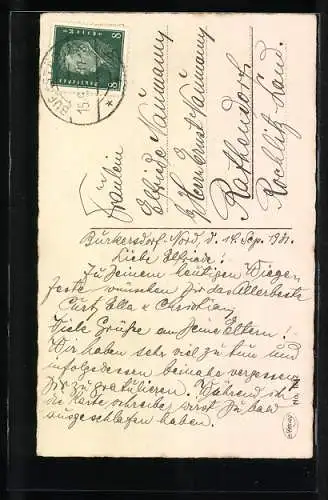 Fräulein
Elfriede Naumann
b/ Herrn Ernst Naumann
Rathendorf
Rochlitz Land.
Burkersdorf-Nord, d. 14. Sep. 1931.
Liebe Elfriede!
Zu Deinem heutigen Wiegen-
feste wünschen Dir das Allerbeste
Curt, Ella u. Christian
Viele Grüße an Deine Eltern!
Wir haben sehr viel zu tun und
infolgedessen beinahe vergessen
Dir zu gratulieren. Während ich
die Karte schreibe, wirst Du bald
ausgeschlafen haben.
8
8
Deutsches
Reich